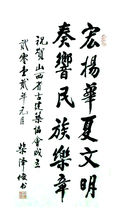 宏揚華夏文明
奏響民族樂章
祝賀山西省古建築協會成立
貳零壹貳年元月
柴澤俊書